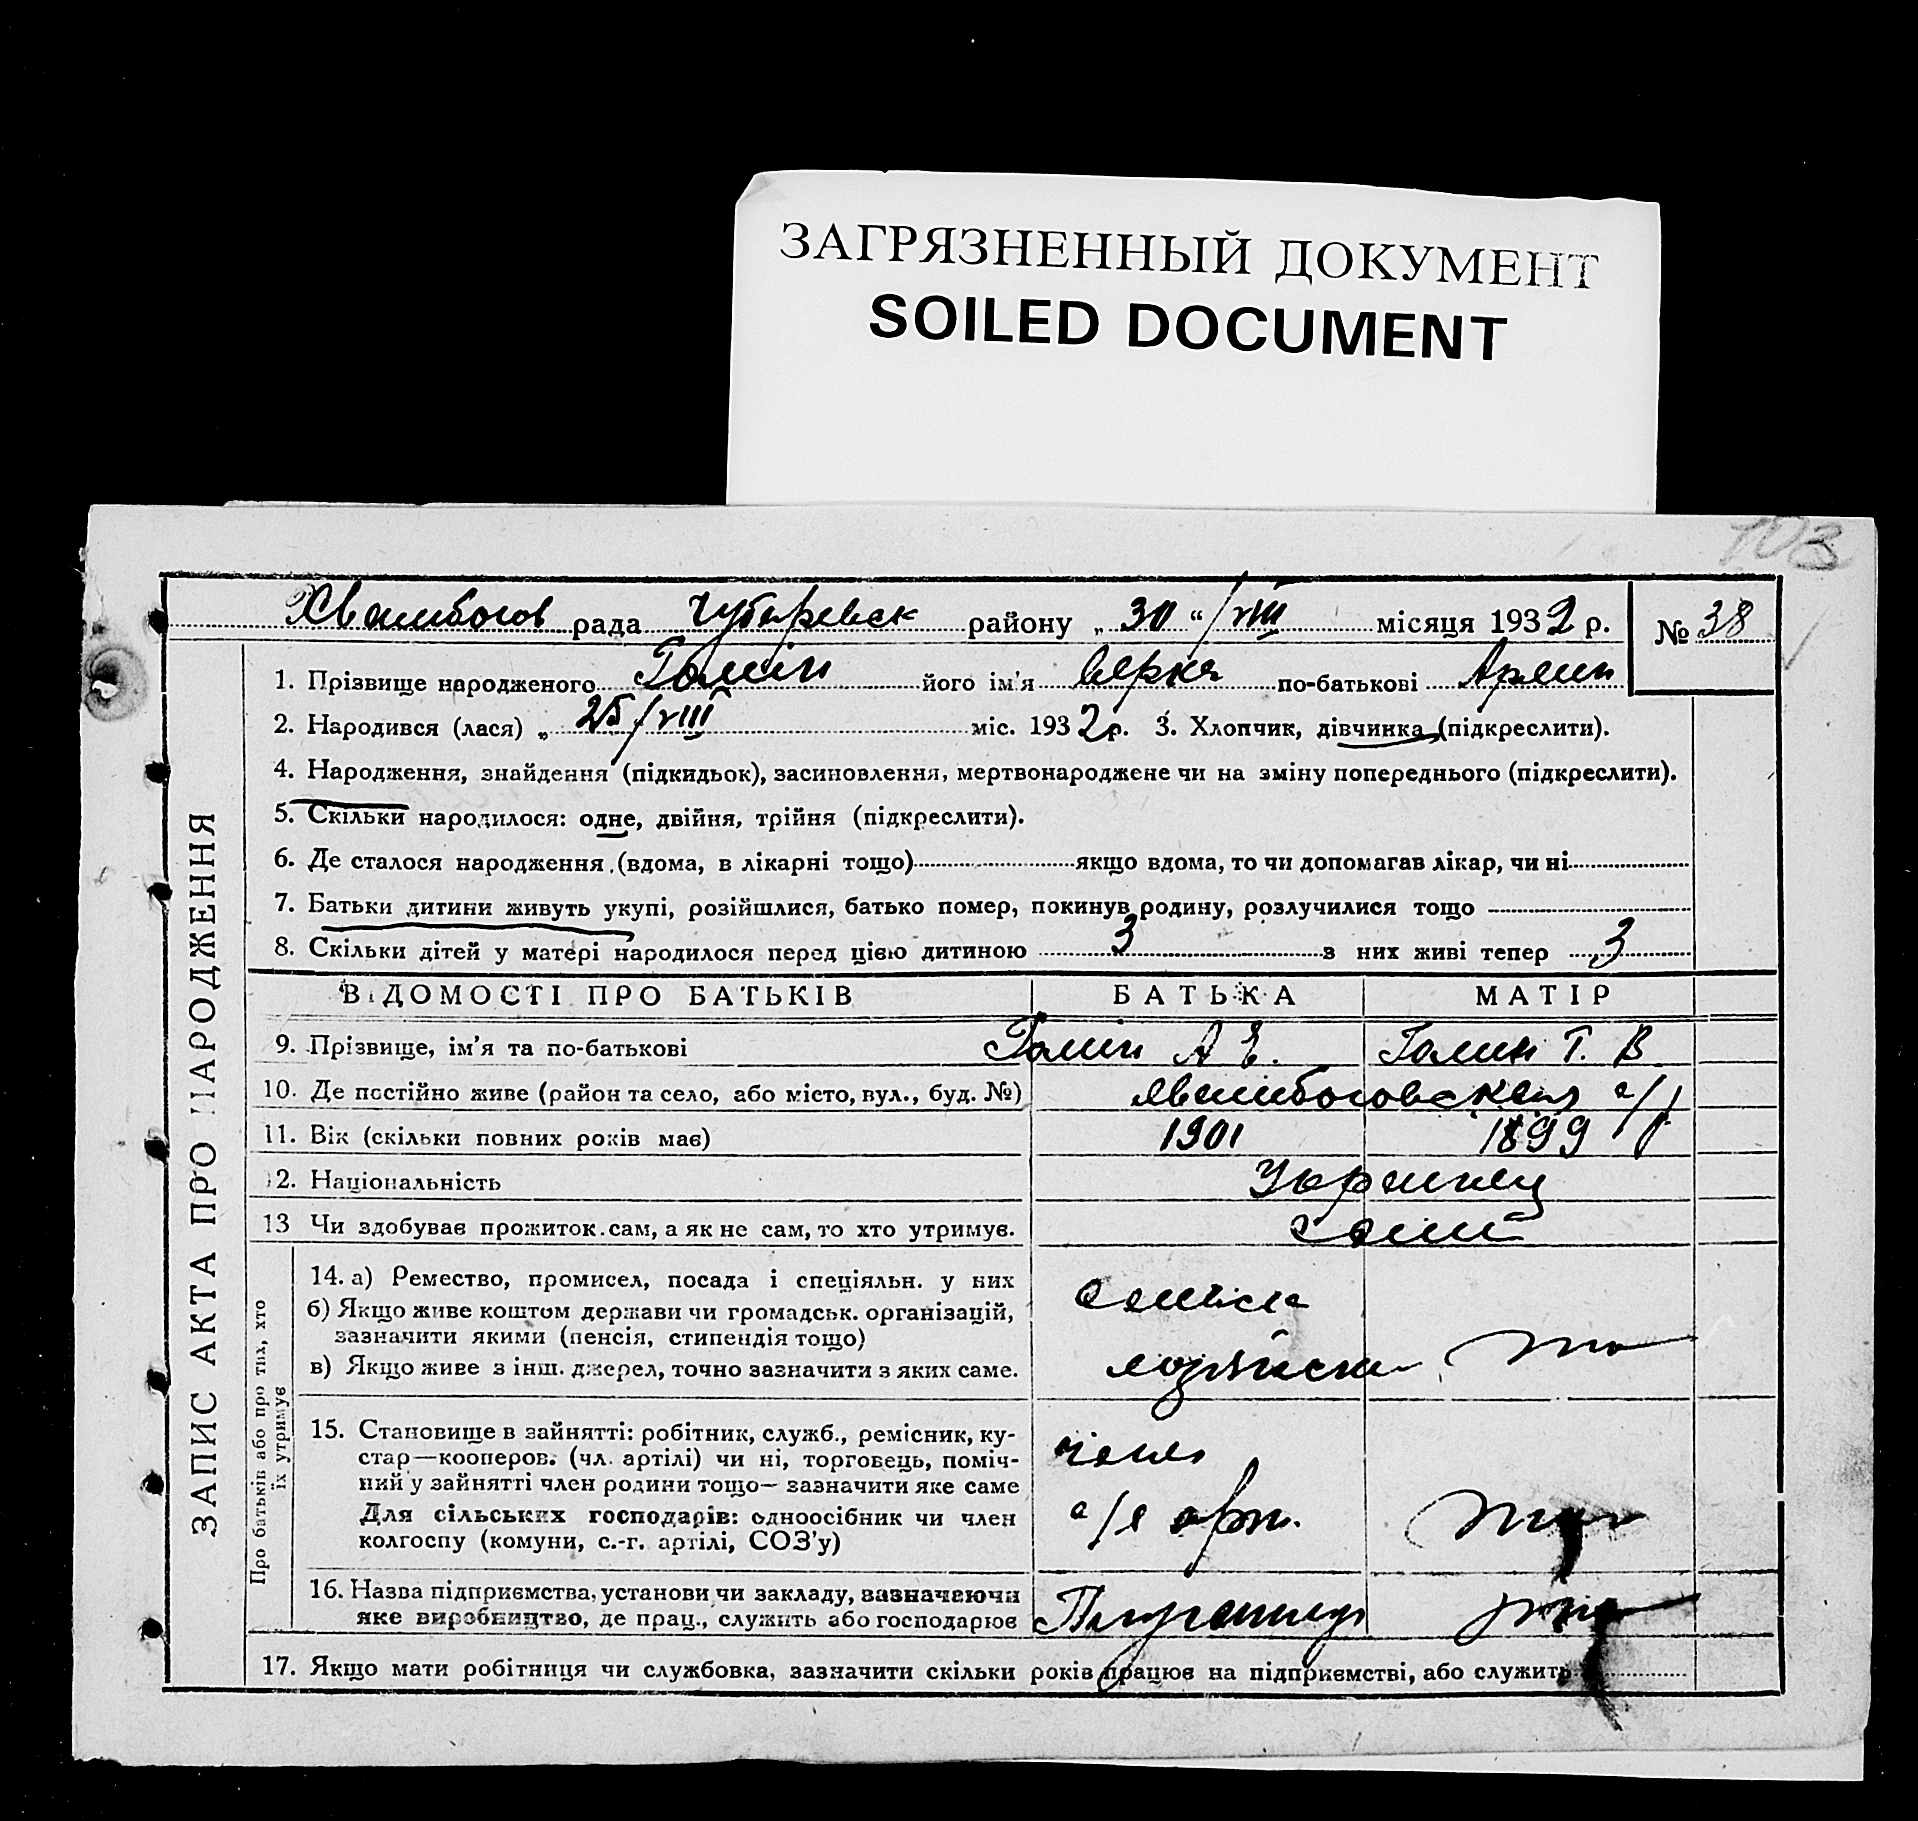 ЗАГРЯЗНЕННЫЙ ДОКУМЕНТ
SOILED DOCUMENT
103
рада Чубаревск району „ 30 “ / VIII місяця 1932 р. № 38
1. Прізвище народженого Гомін його ім'я по-батькові
2. Народився (лася) „ 25 / VIII міс. 1932 р. 3. Хлопчик, дівчинка (підкреслити).
4. Народження, знайдення (підкидьок), засиновлення, мертвонароджене чи на зміну попереднього (підкреслити).
5. Скільки народилося: одне, двійня, трійня (підкреслити).
6. Де сталося народження (вдома, в лікарні тощо) якщо вдома, то чи допомагав лікар, чи ні
7. Батьки дитини живуть укупі, розійшлися, батько помер, покинув родину, розлучилися тощо
8. Скільки дітей у матері народилося перед цією дитиною 3 з них живі тепер 3
ВІДОМОСТІ ПРО БАТЬКІВ БАТЬКА МАТІР
9. Прізвище, ім'я та по-батькові Гомін А Є. Гомин Г. В
10. Де постійно живе (район та село, або місто, вул., буд. №) с/р
11. Вік (скільки повних років має) 1901 1899
12. Національність Украинец
13 Чи здобуває прожиток сам, а як не сам, то хто утримує. сами
14. а) Ремество, промисел, посада і спеціяльн. у них
б) Якщо живе коштом держави чи громадськ. організацій,
зазначити якими (пенсія, стипендія тощо)
в) Якщо живе з інш. джерел, точно зазначити з яких саме.
15. Становище в зайнятті: робітник, служб., ремісник, ку-
стар—кооперов. (чл. артілі) чи ні, торговець, поміч-
ний у зайнятті член родини тощо— зазначити яке саме
Для сільських господарів: одноосібник чи член
колгоспу (комуни, с.-г. артілі, СОЗ'у)
член
с/г арт.
16. Назва підприємства, установи чи закладу, зазначаючи
яке виробництво, де прац., служить або господарює
17. Якщо мати робітниця чи службовка, зазначити скільки років працює на підприємстві, або служить
ЗАПИС АКТА ПРО НАРОДЖЕННЯ
Про батьків або про тих, хто
їх утримує